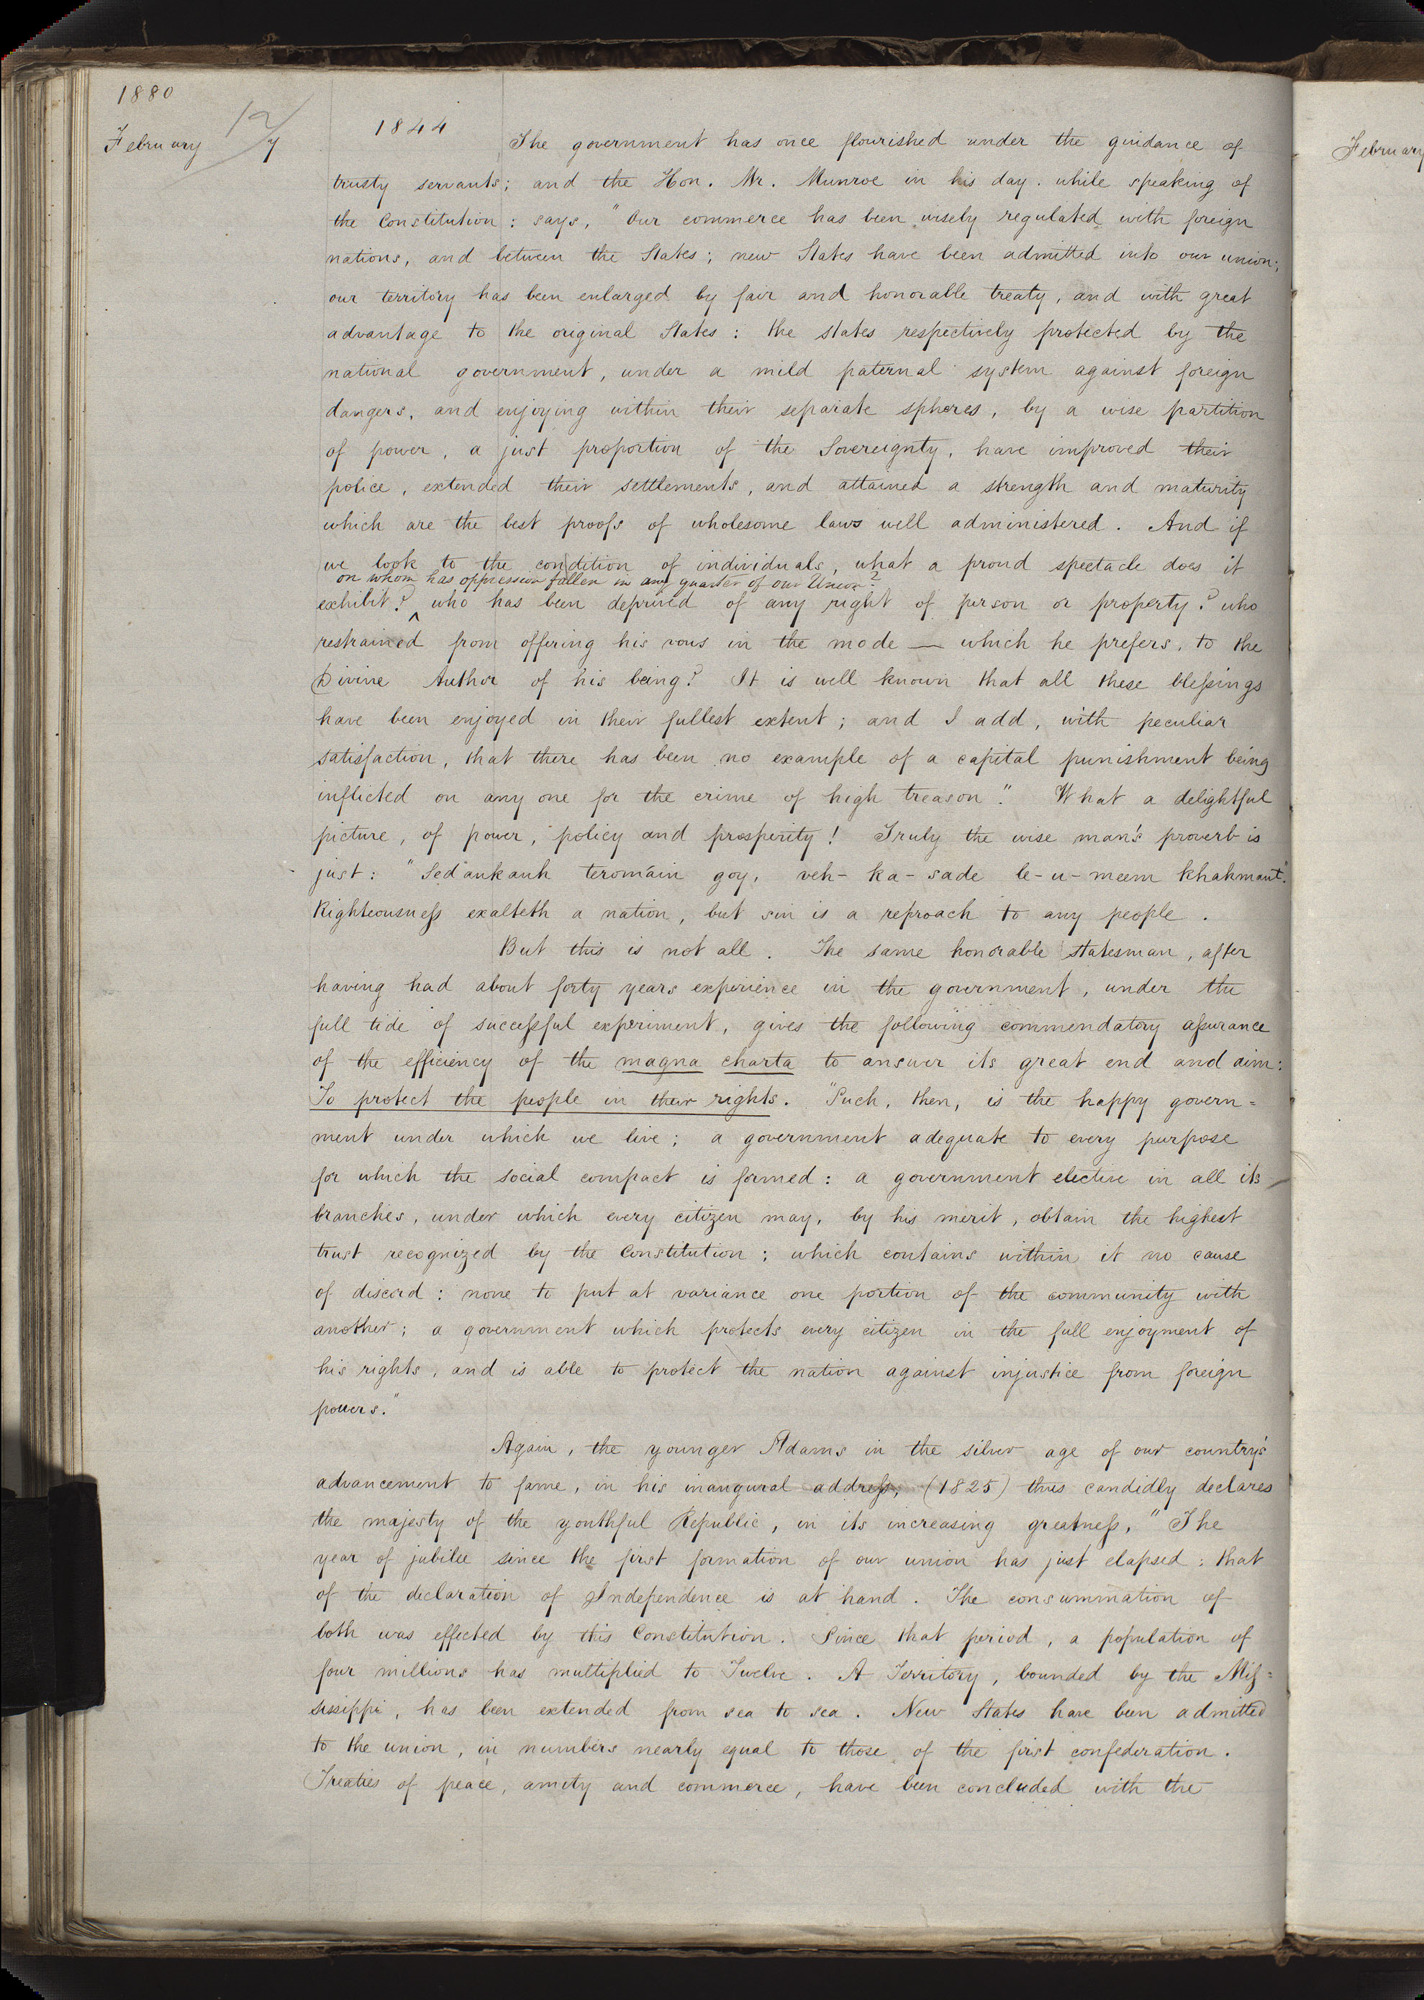 1880
February 7
12
1844
The government has once flourished under the guidance of
trusty servants; and the Hon. Mr. Munroe in his day. while speaking of
the Constitution: says, "Our commerce has been wisely regulated with foreign
nations, and between the States; new States have been admitted into our union;
our territory has been enlarged by fair and honorable treaty, and with great
advantage to the original States: the states respectively protected by the
national government, under a mild paternal system against foreign
dangers, and enjoying within their separate spheres, by a wise partition
of power, a just proportion of the Sovereignty, have improved their
police, extended their settlements, and attained a strength and maturity
which are the best proofs of wholesome laws well administered. And if
we look to the condition of individuals, what a proud spectacle does it
on whom has oppression fallen in any quarter of our Union?
exhibit? ^ who has been deprived of any right of person or property? who
restrained from offering his vows in the mode — which he prefers, to the
Divine Author of his being? It is well known that all these blessings
have been enjoyed in their fullest extent; and I add, with peculiar
satisfaction, that there has been no example of a capital punishment being
inflicted on any one for the crime of high treason." What a delightful
picture, of power, policy and prosperity! Truly the wise man's proverb is
just: "Sedaukauh teromáin goy, veh-ka-sade le-u-meem khahmaut."
Righteousness exalteth a nation, but sin is a reproach to any people.
But this is not all. The same honorable statesman, after
having had about forty years experience in the government, under the
full tide of successful experiment, gives the following commendatory assurance
of the efficiency of the magna charta to answer its great end and aim:
To protect the people in their rights. "Such, then, is the happy govern=
ment under which we live; a government adequate to every purpose
for which the social compact is formed: a government elective in all its
branches, under which every citizen may, by his merit, obtain the highest
trust recognized by the Constitution; which contains within it no cause
of discord: none to put at variance one portion of the community with
another; a government which protects every citizen in the full enjoyment of
his rights, and is able to protect the nation against injustice from foreign
powers."
Again, the younger Adams in the silver age of our country's
advancement to fame, in his inaugural address, (1825) thus candidly declares
the majesty of the youthful Republic, in its increasing greatness, "The
year of jubilee since the first formation of our union has just elapsed: that
of the declaration of Independence is at hand. The consummation of
both was effected by this Constitution. Since that period, a population of
four millions has multiplied to Twelve. A Territory, bounded by the Mis=
sissippi, has been extended from sea to sea. New States have been admitted
to the union, in numbers nearly equal to those of the first confederation.
Treaties of peace, amity and commerce, have been concluded with the
February